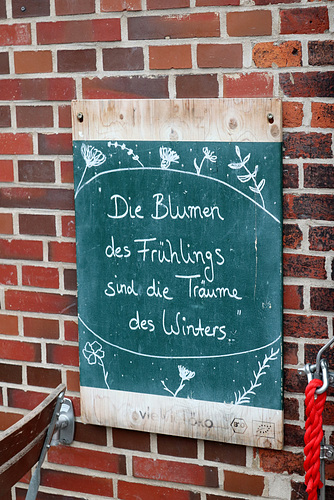 Die Blumen
des Frühlings
sind die Träume
des Winters"